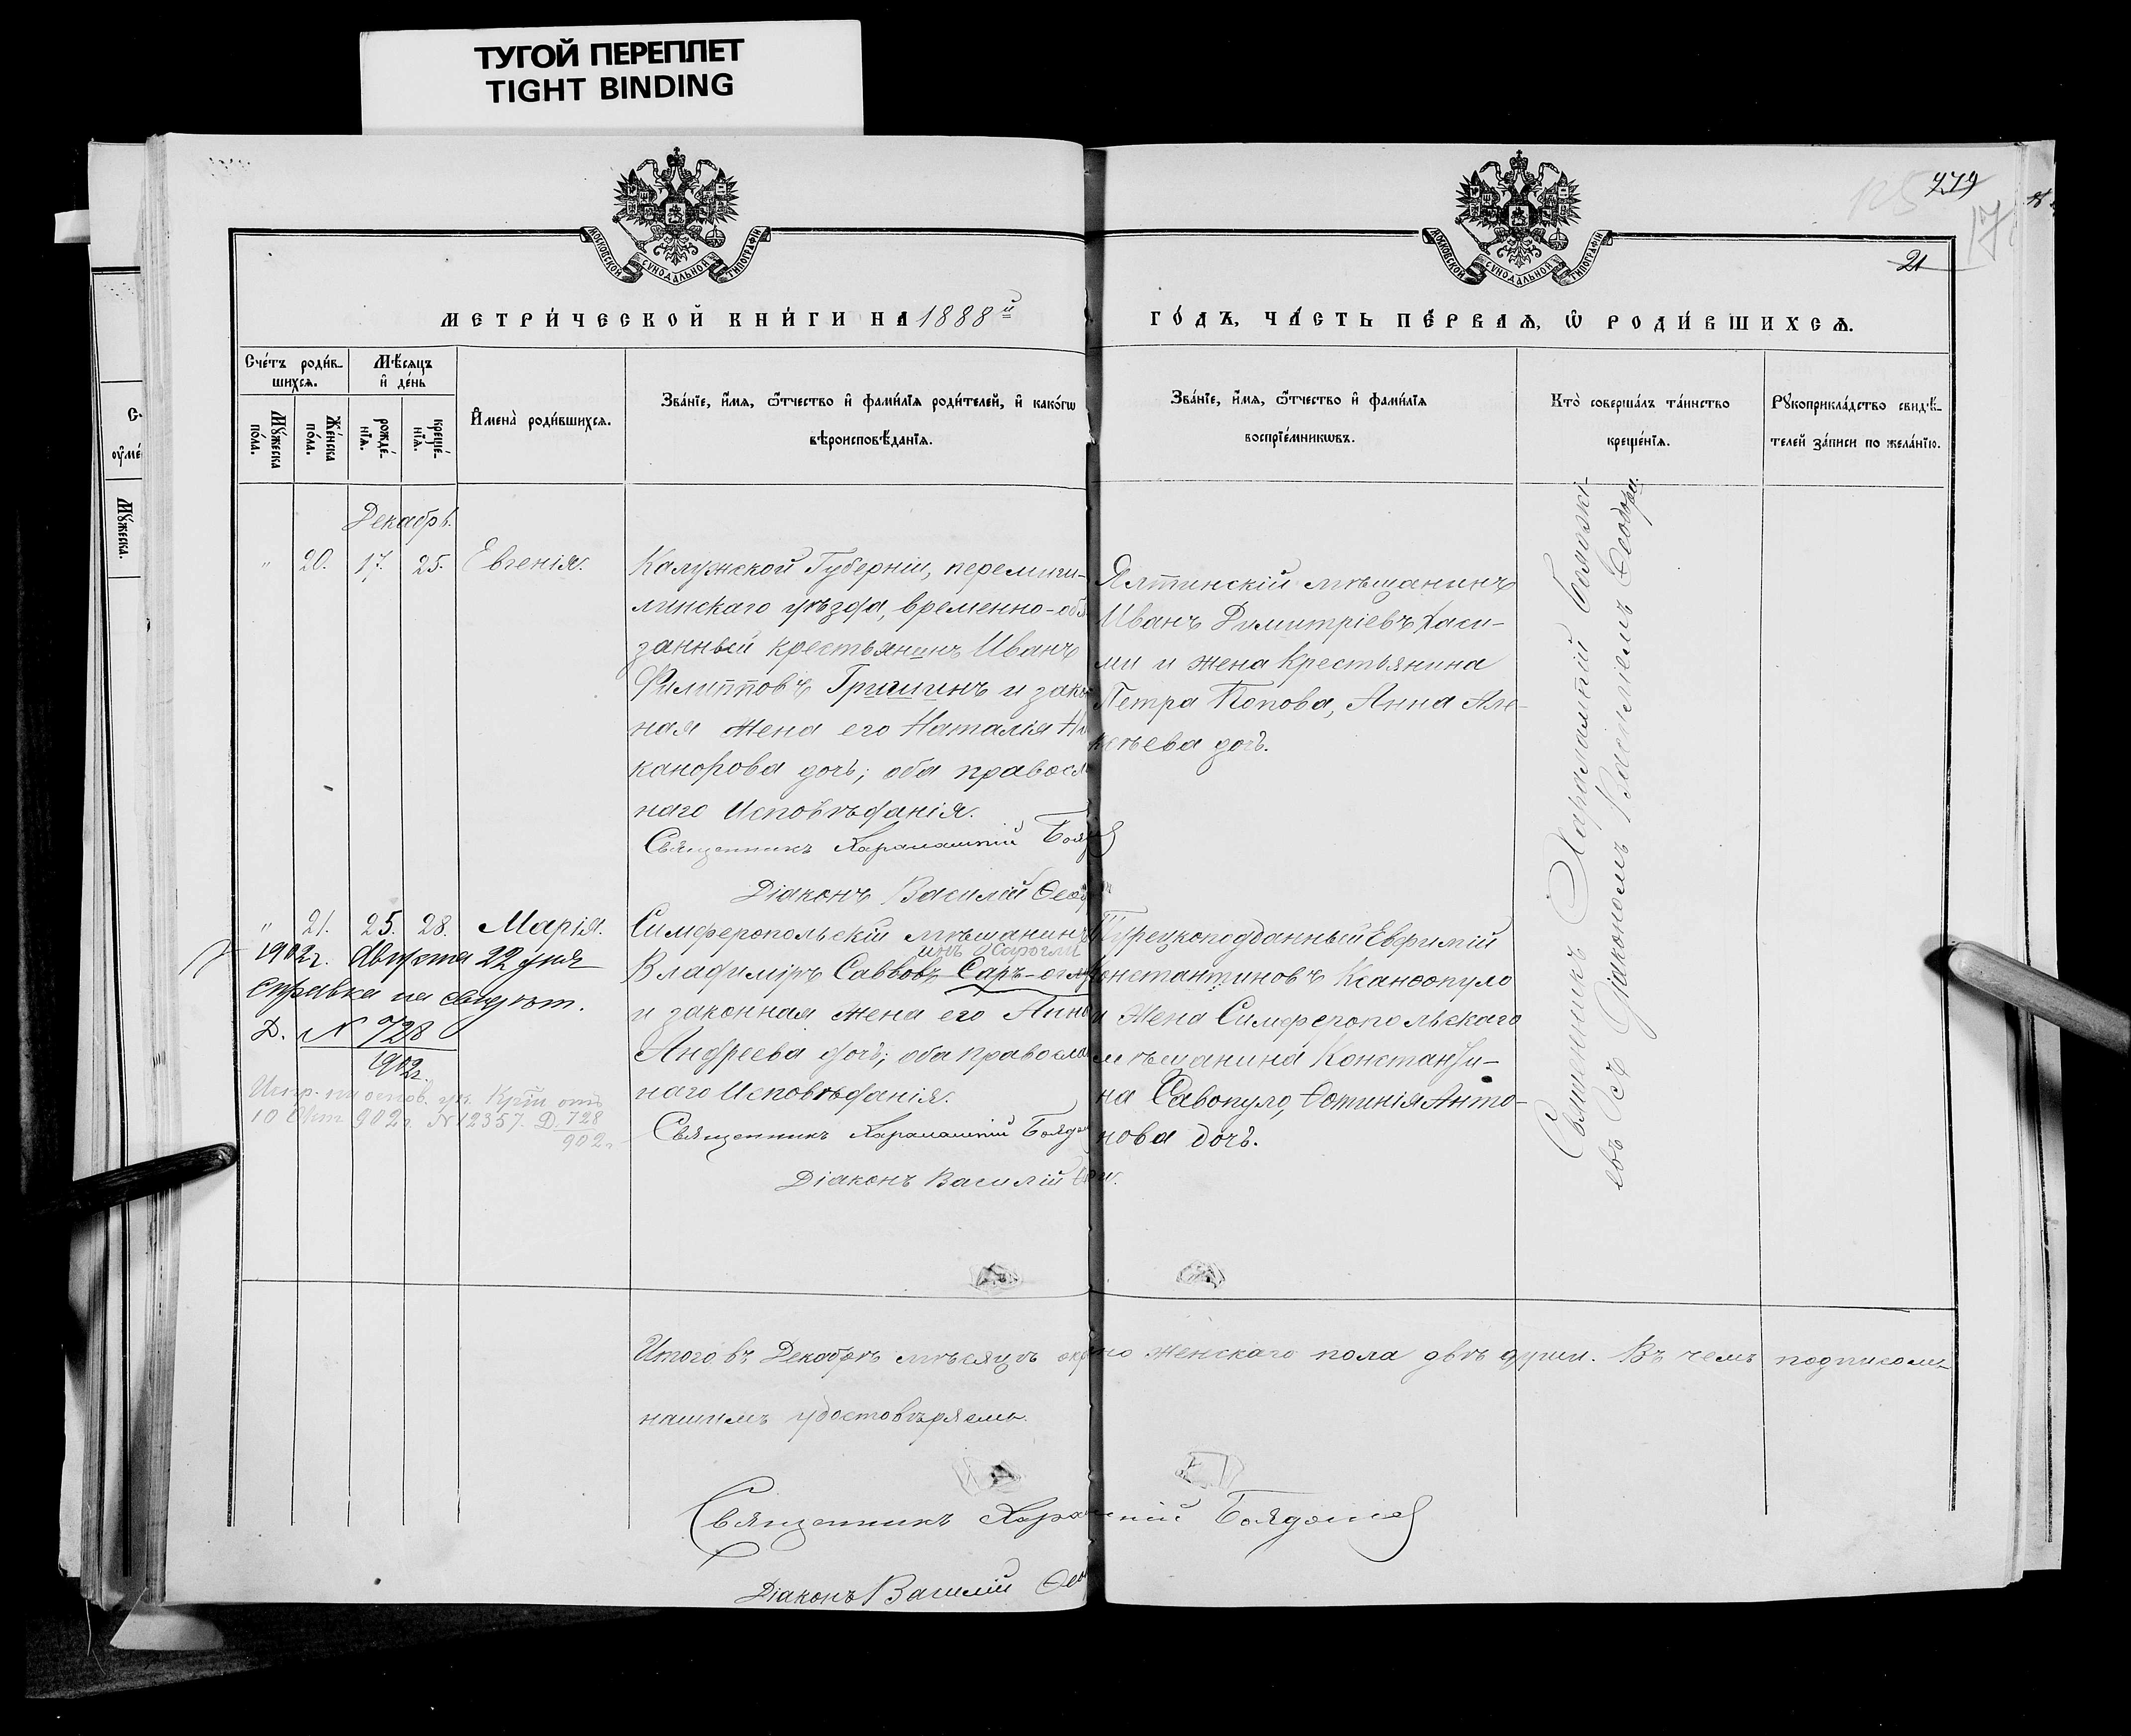 ТУГОЙ ПЕРЕПЛЕТ
TIGHT BINDING
МОСКОВСКОЙ СѴНОДАЛЬНОЙ ТИПОГРАФІИ
МОСКОВСКОЙ СѴНОДАЛЬНОЙ ТИПОГРАФІИ
779
125
17
21
МЕТРИ́ЧЕСКОЙ КНИ́ГИ НА 1888й
ГО́ДЪ, ЧА́СТЬ ПЕ́РВАѦ, Ѡ҆ РОДИ́ВШИХСѦ.
Сче́тъ роди́в-
шихсѧ.
Мꙋ́жеска
по́ла.
Же́нска
по́ла.
Мѣ́сѧцъ
и҆ де́нь
рожде́-
нїѧ.
креще́-
нїѧ.
И҆мена̀ роди́вшихсѧ.
Зва́нїе, и҆́мѧ, ѻ҆́тчество и҆ фами́лїѧ роди́телей, и҆ како́гѡ
вѣроисповѣ́данїѧ.
Зва́нїе, и҆́мѧ, ѻ҆́тчество и҆ фами́лїѧ
воспрїе́мникѡвъ.
Кто̀ соверша́лъ та́инство
креще́нїѧ.
Рꙋкоприкла́дство свидѣ́-
телей за́писи по жела́нїю.
Мꙋ́жеска.
Декабрь.
" 20. 17. 25. Евгенія.
Калужской Губерніи, перемиш-
линскаго уѣзда, временно-обя
занный крестьянинъ Иванъ
Филипповъ Гришинъ и зако
ная жена его Наталія Ни
канорова дочь; оба правосл
наго Исповѣданія.
Священникъ Харалампій Бояд
Діаконъ Василій Ѳеод
Ялтинскій мѣщанинъ
Иванъ Димитріевъ Хаси-
ми и жена крестьянина
Петра Попова, Анна Але-
ксѣева дочь.
Священникъ Харалампій Бояджи-
евъ съ Діакономъ Василіемъ Ѳеодори.
" 21. 25. 28. Марія.
1902г. Августа 22 дня
справка на свидѣт.
Д. № 728
902г.
Испр. на основ. ук. Крій отъ
10 Окт 902г. № 12357. Д. 728
902г.
Симферопольскій мѣщанинъ
инъ Сарогли
Владиміръ Саввовъ Саръ-огл
и законная жена его Анна
Андреева дочь; оба правосла
наго Исповѣданія.
Священникъ Харалампій Бояд
Діаконъ Василій
Турецкоподданный Евфимій
Константиновъ Ксанѳопуло
и жена Симферопольскаго
мѣщанина Константи-
на Савопуло, Фотинія Анто-
нова дочь.
Итого въ Декабрѣ мѣсяцѣ одно женскаго пола двѣ души. Въ чемъ подписом-
нашимъ удостовѣряемъ.
Священникъ Харалампій Бояджіев
Діаконъ Василій Ѳео